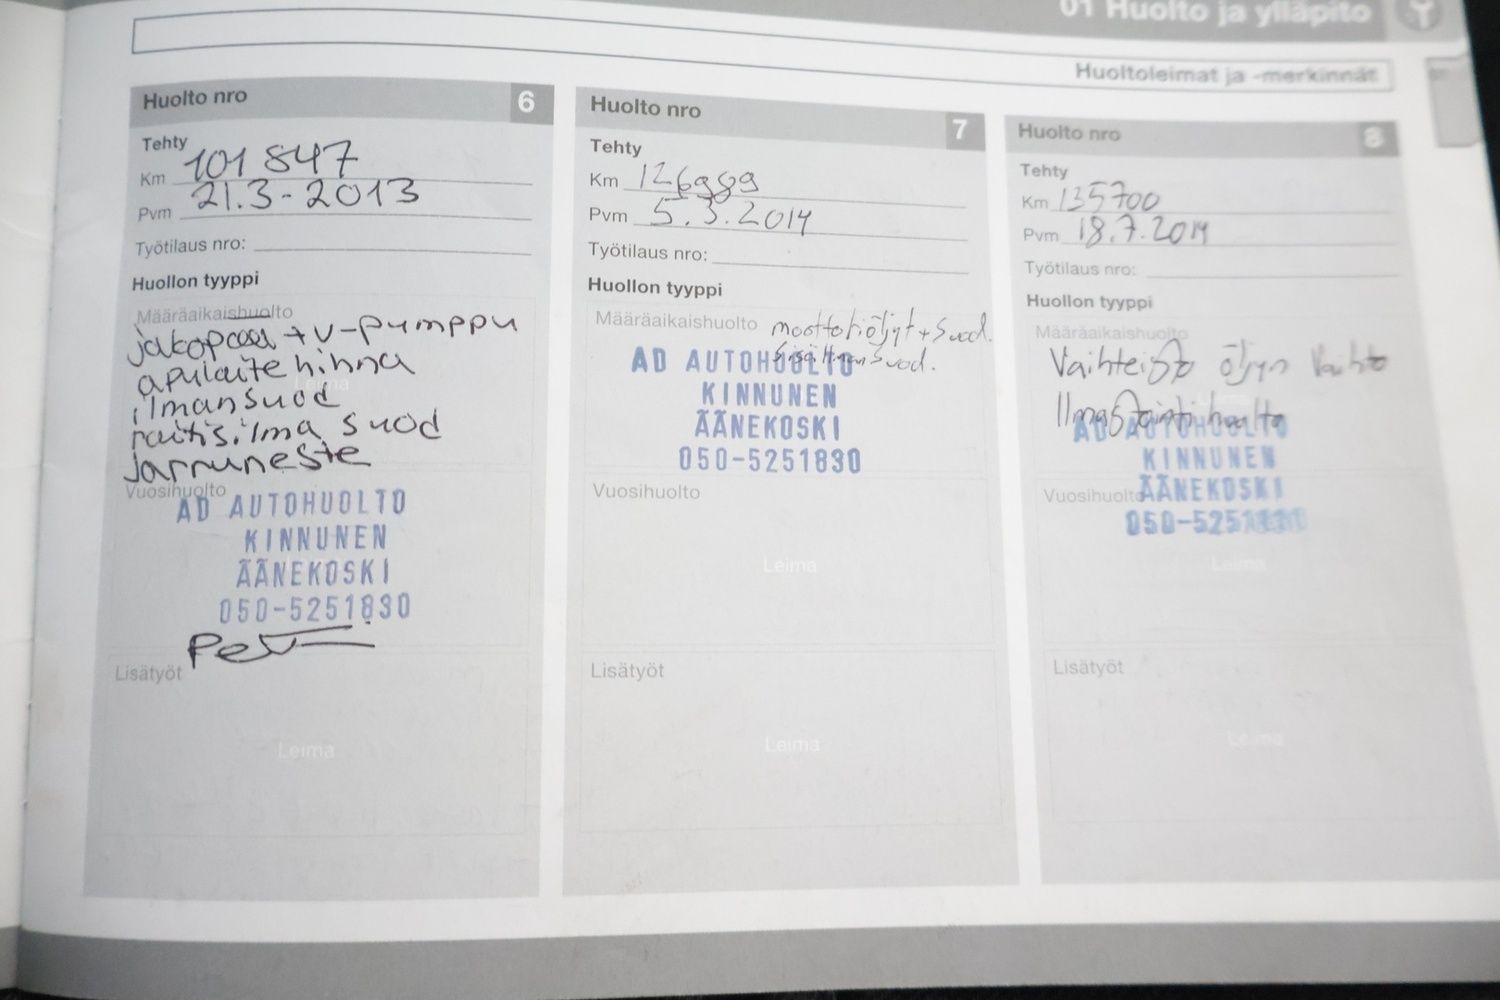 01 Huolto ja ylläpito
Huoltoleimat ja -merkinnät
Huolto nro 6
Tehty
Km 101 847
Pvm 21.3-2013
Työtilaus nro:
Huollon tyyppi
Määräaikaishuolto
jakopää + v-pumppu
apulaitehihna
Leima
ilmansuod
raitisilma suod
jarruneste
Vuosihuolto
AD AUTOHUOLTO
KINNUNEN
ÄÄNEKOSKI
050-5251830
Lisätyöt
Leima
Huolto nro 7
Tehty
Km 126989
Pvm 5.3.2014
Työtilaus nro:
Huollon tyyppi
Määräaikaishuolto
moottoriöljyt + suod.
sisäilmansuod.
AD AUTOHUOLTO
KINNUNEN
ÄÄNEKOSKI
050-5251830
Vuosihuolto
Leima
Lisätyöt
Leima
Huolto nro 8
Tehty
Km 135700
Pvm 18.7.2014
Työtilaus nro:
Huollon tyyppi
Määräaikaishuolto
Vaihteisto öljyn vaihto
Ilmastointi huolto
AD AUTOHUOLTO
KINNUNEN
Vuosihuolto
ÄÄNEKOSKI
Leima
Lisätyöt
Leima